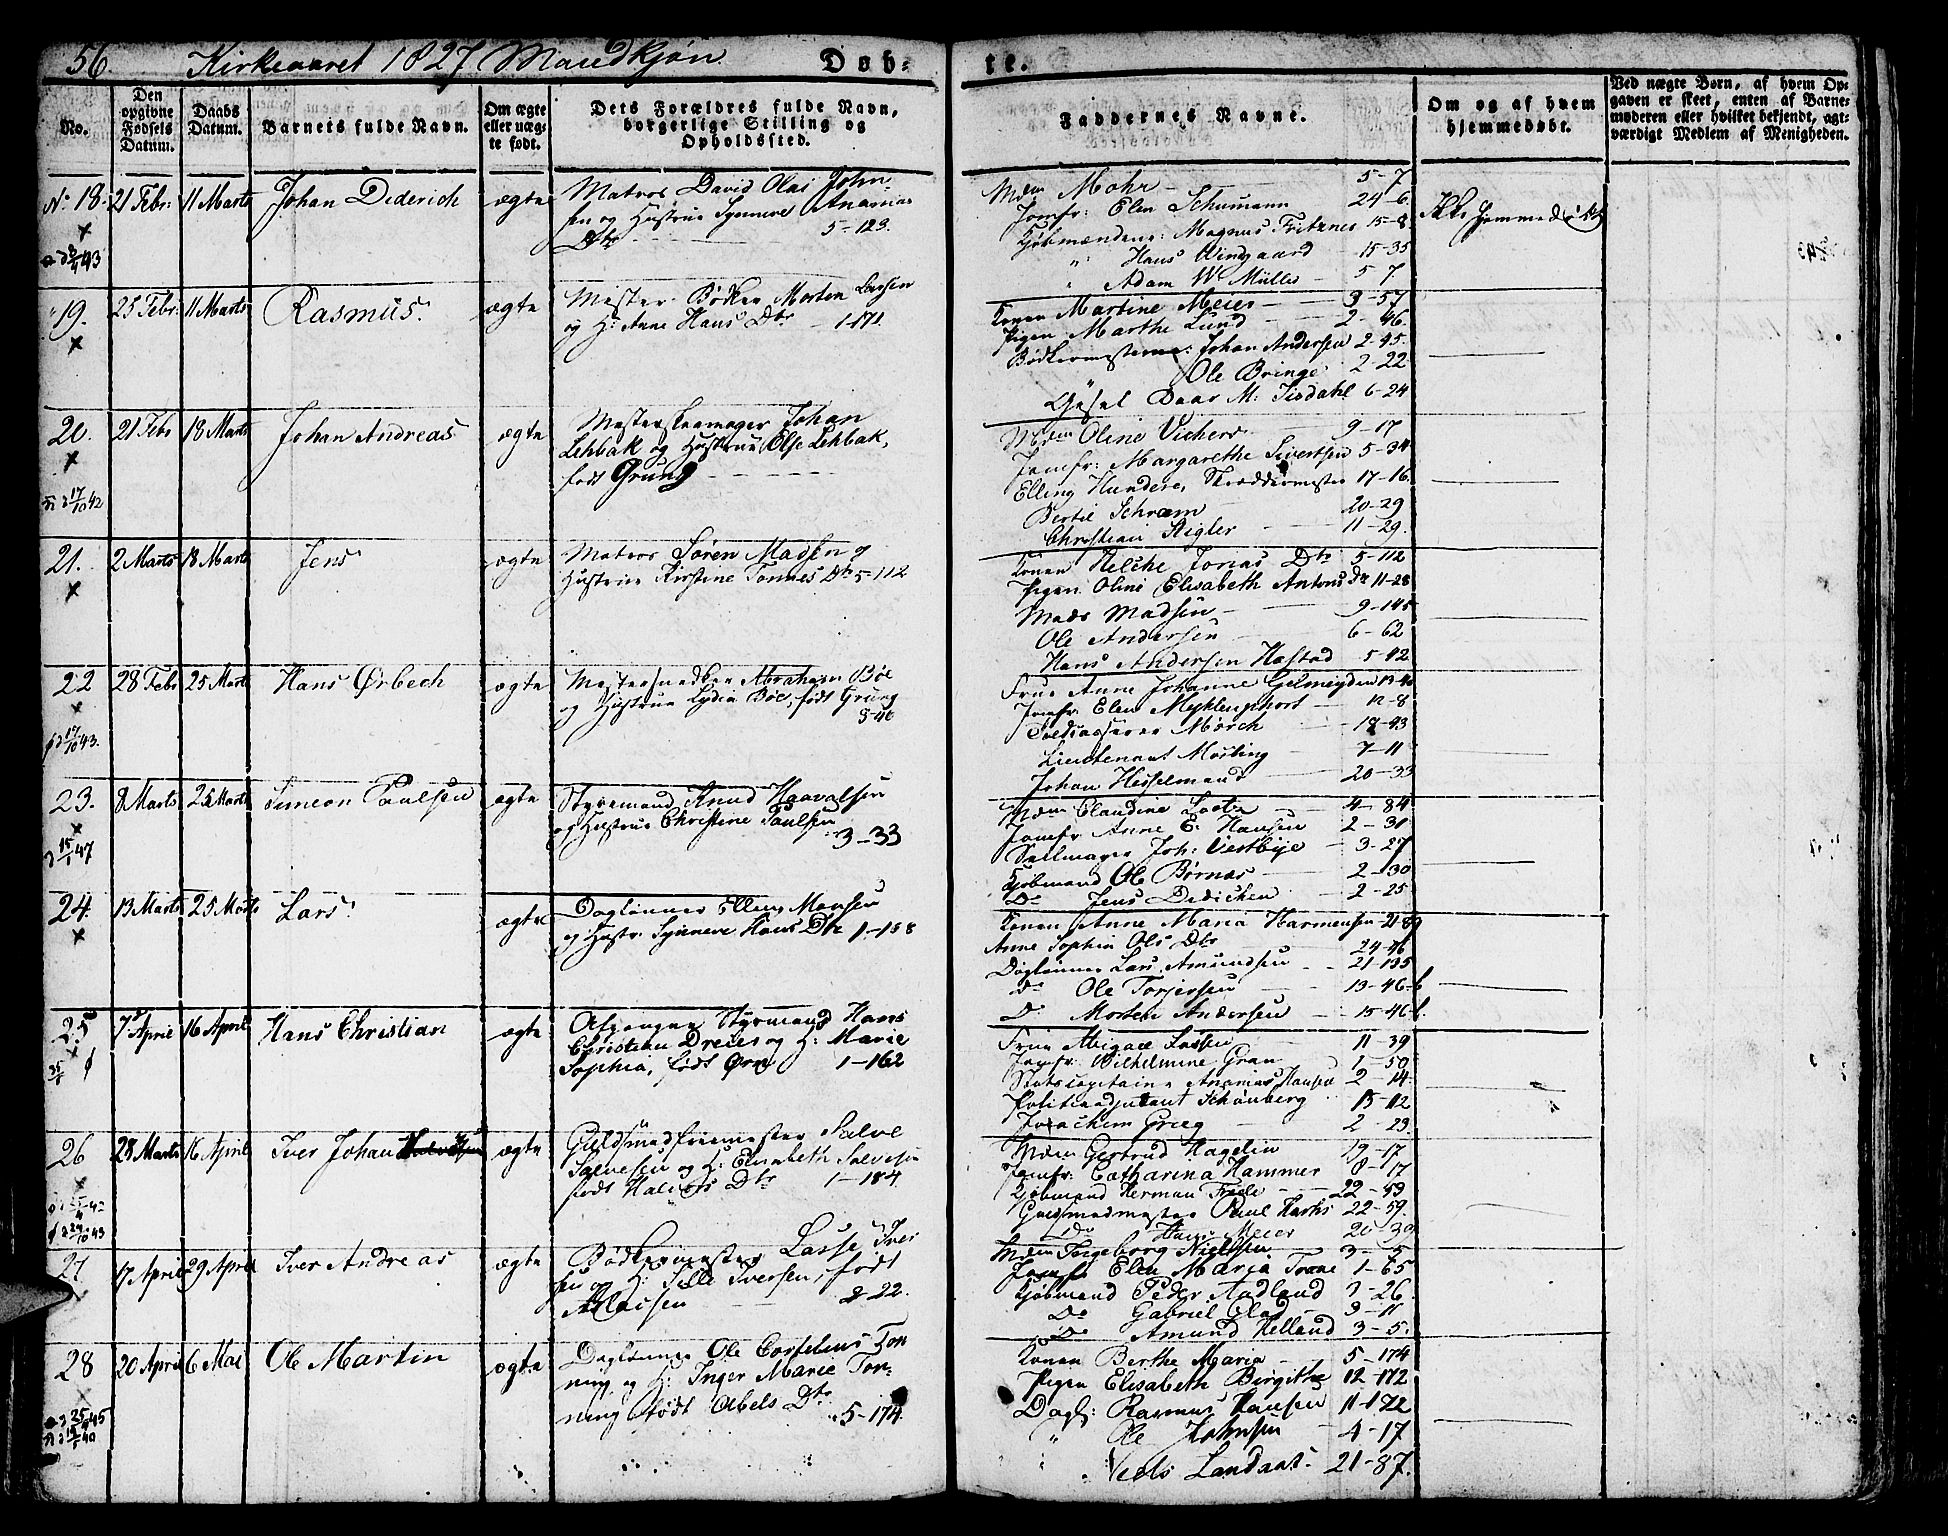 56 Kirkeaaret 1827 Mandkjøn Døb- te.
No.
Den opgivne Fødsels Datum.
Daabs Datum.
Barnets fulde Navn.
Om ægte eller uæg- te født.
Dets Forældres fulde Navn, borgerlige Stilling og Opholdssted.
Faddernes Navne.
Om og af hvem hjemmedøbt.
Ved uægte Børn, af hvem Op- gaven er skeet, enten af Barne- moderen eller hvilket bekjendt, agt- værdigt Medlem af Menigheden.
No 18. 21 Febr: 11 Marts Johan Diderich ægte
Matros David Olai John-
sen og Hustrue Synneve Ananias
Dtr 5-123.
Mdm Mohr 5-7
Jomfr: Elen Schumann 24-6
Kjøbmændene: Magnus Fritzner 15-8
" Hans Windgaard 15-35
" Adam W. Müller 5-7
Ikke hjemmedøbt
19. 25 Febr: 11 Marts Rasmus. ægte
Mester Bødker Morten Larsen
og H: Anne Hans Dtr 1-171.
Konen Martine Meier 3-57
Pigen Marthe Lund 2-46.
Bødkermesterne: Johan Andersen 2-45.
Ole Bringe 2-22
Gesel Daar M. Tisdahl 6-24
20. 21 Febr 18 Marts Johan Andreas ægte
Mester Skomager Johan
Lehbak og Hustrue Else Lehbak,
født Grung
Mdm Oline Vicher 9-17
Jomfr: Margarethe Sivertsen 5-34
Elling Hundere, Skræddermester 17-16.
Bertil Schram 20-29
Christian Aigler 11-29.
21. 2 Marts 18 Marts Jens ægte
Matros Søren Madsen og
Hustrue Kirstine Tønnes Dtr 5-112
Konen Helche Jonas Dtr 5-112
Pigen Olini Elisabeth Antons Dr 11-28
Mads Madsen 9-145
Ole Andersen 6-62
Hans Andersen Hastad 5-42
22 28 Febr 25 Marts Hans Ørbech ægte
Mestersnedker Abraham Bøe
og Hustrue Lydia Bøe, født Grung
8-40
Frue Anne Johanne Gelmeyden 13-40
Jomfr: Elen Myhlenphort 12-8
Toldkasserer Mørch 18-43
Lieutenant Møsting 7-11
Johan Hesselmand 20-33
23. 8 Marts 25 Marts Simeon Paulsen ægte
Styrmand Knud Haavalsen
og Hustrue Christine Paulsen
3-33
Mdm Claudine Loetz 4-84
Jomfr Anne E. Hansen 2-31
Sallmager Joh: Vestbye 3-27
Kjøbmand Ole Børnæs 2-30
Do Jens Dedichen 2-25
24. 13 Marts 25 Marts Lars. ægte
Dagleiner Ellen Monsen
og Hustr. Synneve Hans Dtr 1-158
Konen Anne Maria Harmensen 21-89
Anne Sophia Ols Dtr 24-46
Dagleiner Lars Amundsen 21-135
Do Ole Torjersen 13-46-b
D. Morten Andersen 15-46 b.
25 7 April 16 April Hans Christian ægte
Afgangne Styrmand Hans
Christian Dreier og H: Marie
Sophia, født Ørn 1-162
Frue Abigael Lassen 11-39
Jomfr: Wilhelmine Gran 1-50
Slotscapitain Ananias Hansen 2-14
Politieadjutant Schønberg 13-112
Joachim Grieg 2-23.
26 28 Marts 16 April Iver Johan ægte
Guldsmedfriemester Salve
Salvesen og H: Elisabeth Salvesen
født Halvors Dtr 1-184.
Mdm Gertrud Hagelin 19-17
Jomfr: Catharina Hammer 8-17
Kjøbmand Herman Friele 22-53
Guldsmedmester Paul Harts 22-59.
Do Hans Meier 20-39
27. 17 April 29 April Iver Andreas ægte
Bødkermester Lasse Iver
sen og H: Sille Iversen, født
Mdm Ingeborg Nielsen 3-5
Jomfr Elen Maria Trane 1-65
Kjøbmand Peder Aadland 3-26.
Do Gabriel Glad 3-11
Do Amund Helland 3-5.
2-22.
28 20 April 6 Mai Ole Martin ægte
Dagleiner Ole Cornelius Ton
ning og H: Inger Marie Ton-
ning født Abels Dtr
5-174
Konen Berthe Maria 5-174
Pigen Elisabeth Birgithe 12-172
Dagl: Rasmus Hansen 11-122
" Ole Johnsen 4-17
" Niels Landaas 21-87.